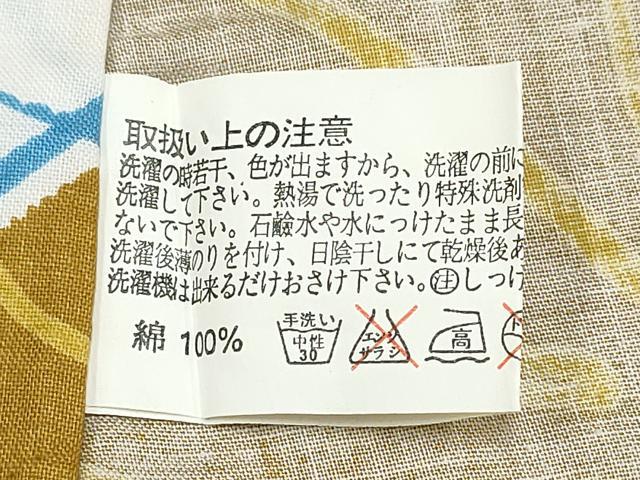 取扱い上の注意
洗濯の時若干、色が出ますから、洗濯の前に
洗濯して下さい。熱湯で洗ったり特殊洗剤
ないで下さい。石鹼水や水につけたまま長
洗濯後薄のりを付け、日陰干しにて乾燥後あ
洗濯機は出来るだけおさけ下さい。㊟しつけ
綿 100% 手洗い 中性 30 エンソ サラシ 高 ド